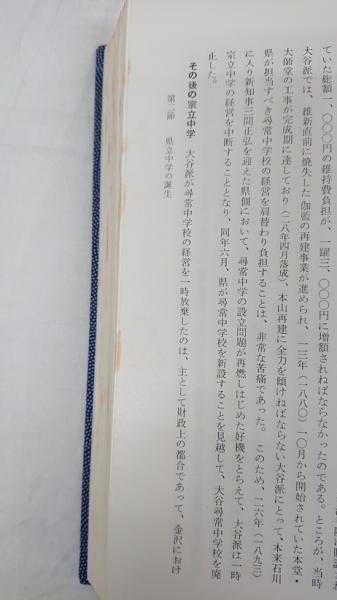 ていた総額一、〇〇〇円の維持費負担が、一躍三、〇〇〇円に増額されねばならなかったのである。ところが、当時
大谷派では、維新直前に焼失した伽藍の再建事業が進められ、一三年（一八八〇）一〇月から開始されていた本堂・
大師堂の工事が完成期に達しており（二八年四月落成）、本山再建に全力を傾けねばならない大谷派にとって、本来石川
県が担当すべき尋常中学校の経営を肩替わり負担することは、非常な苦痛であった。このため、二六年（一八九三）
に入り新知事三間正弘を迎えた県側において、尋常中学の設立問題が再燃しはじめた好機をとらえて、大谷派は一時
宗立中学の経営を中断することとなり、同年六月、県が尋常中学校を新設することを見越して、大谷尋常中学校を廃
止した。
その後の宗立中学　大谷派が尋常中学校の経営を一時放棄したのは、主として財政上の都合であって、金沢におけ
第二節　県立中学の誕生